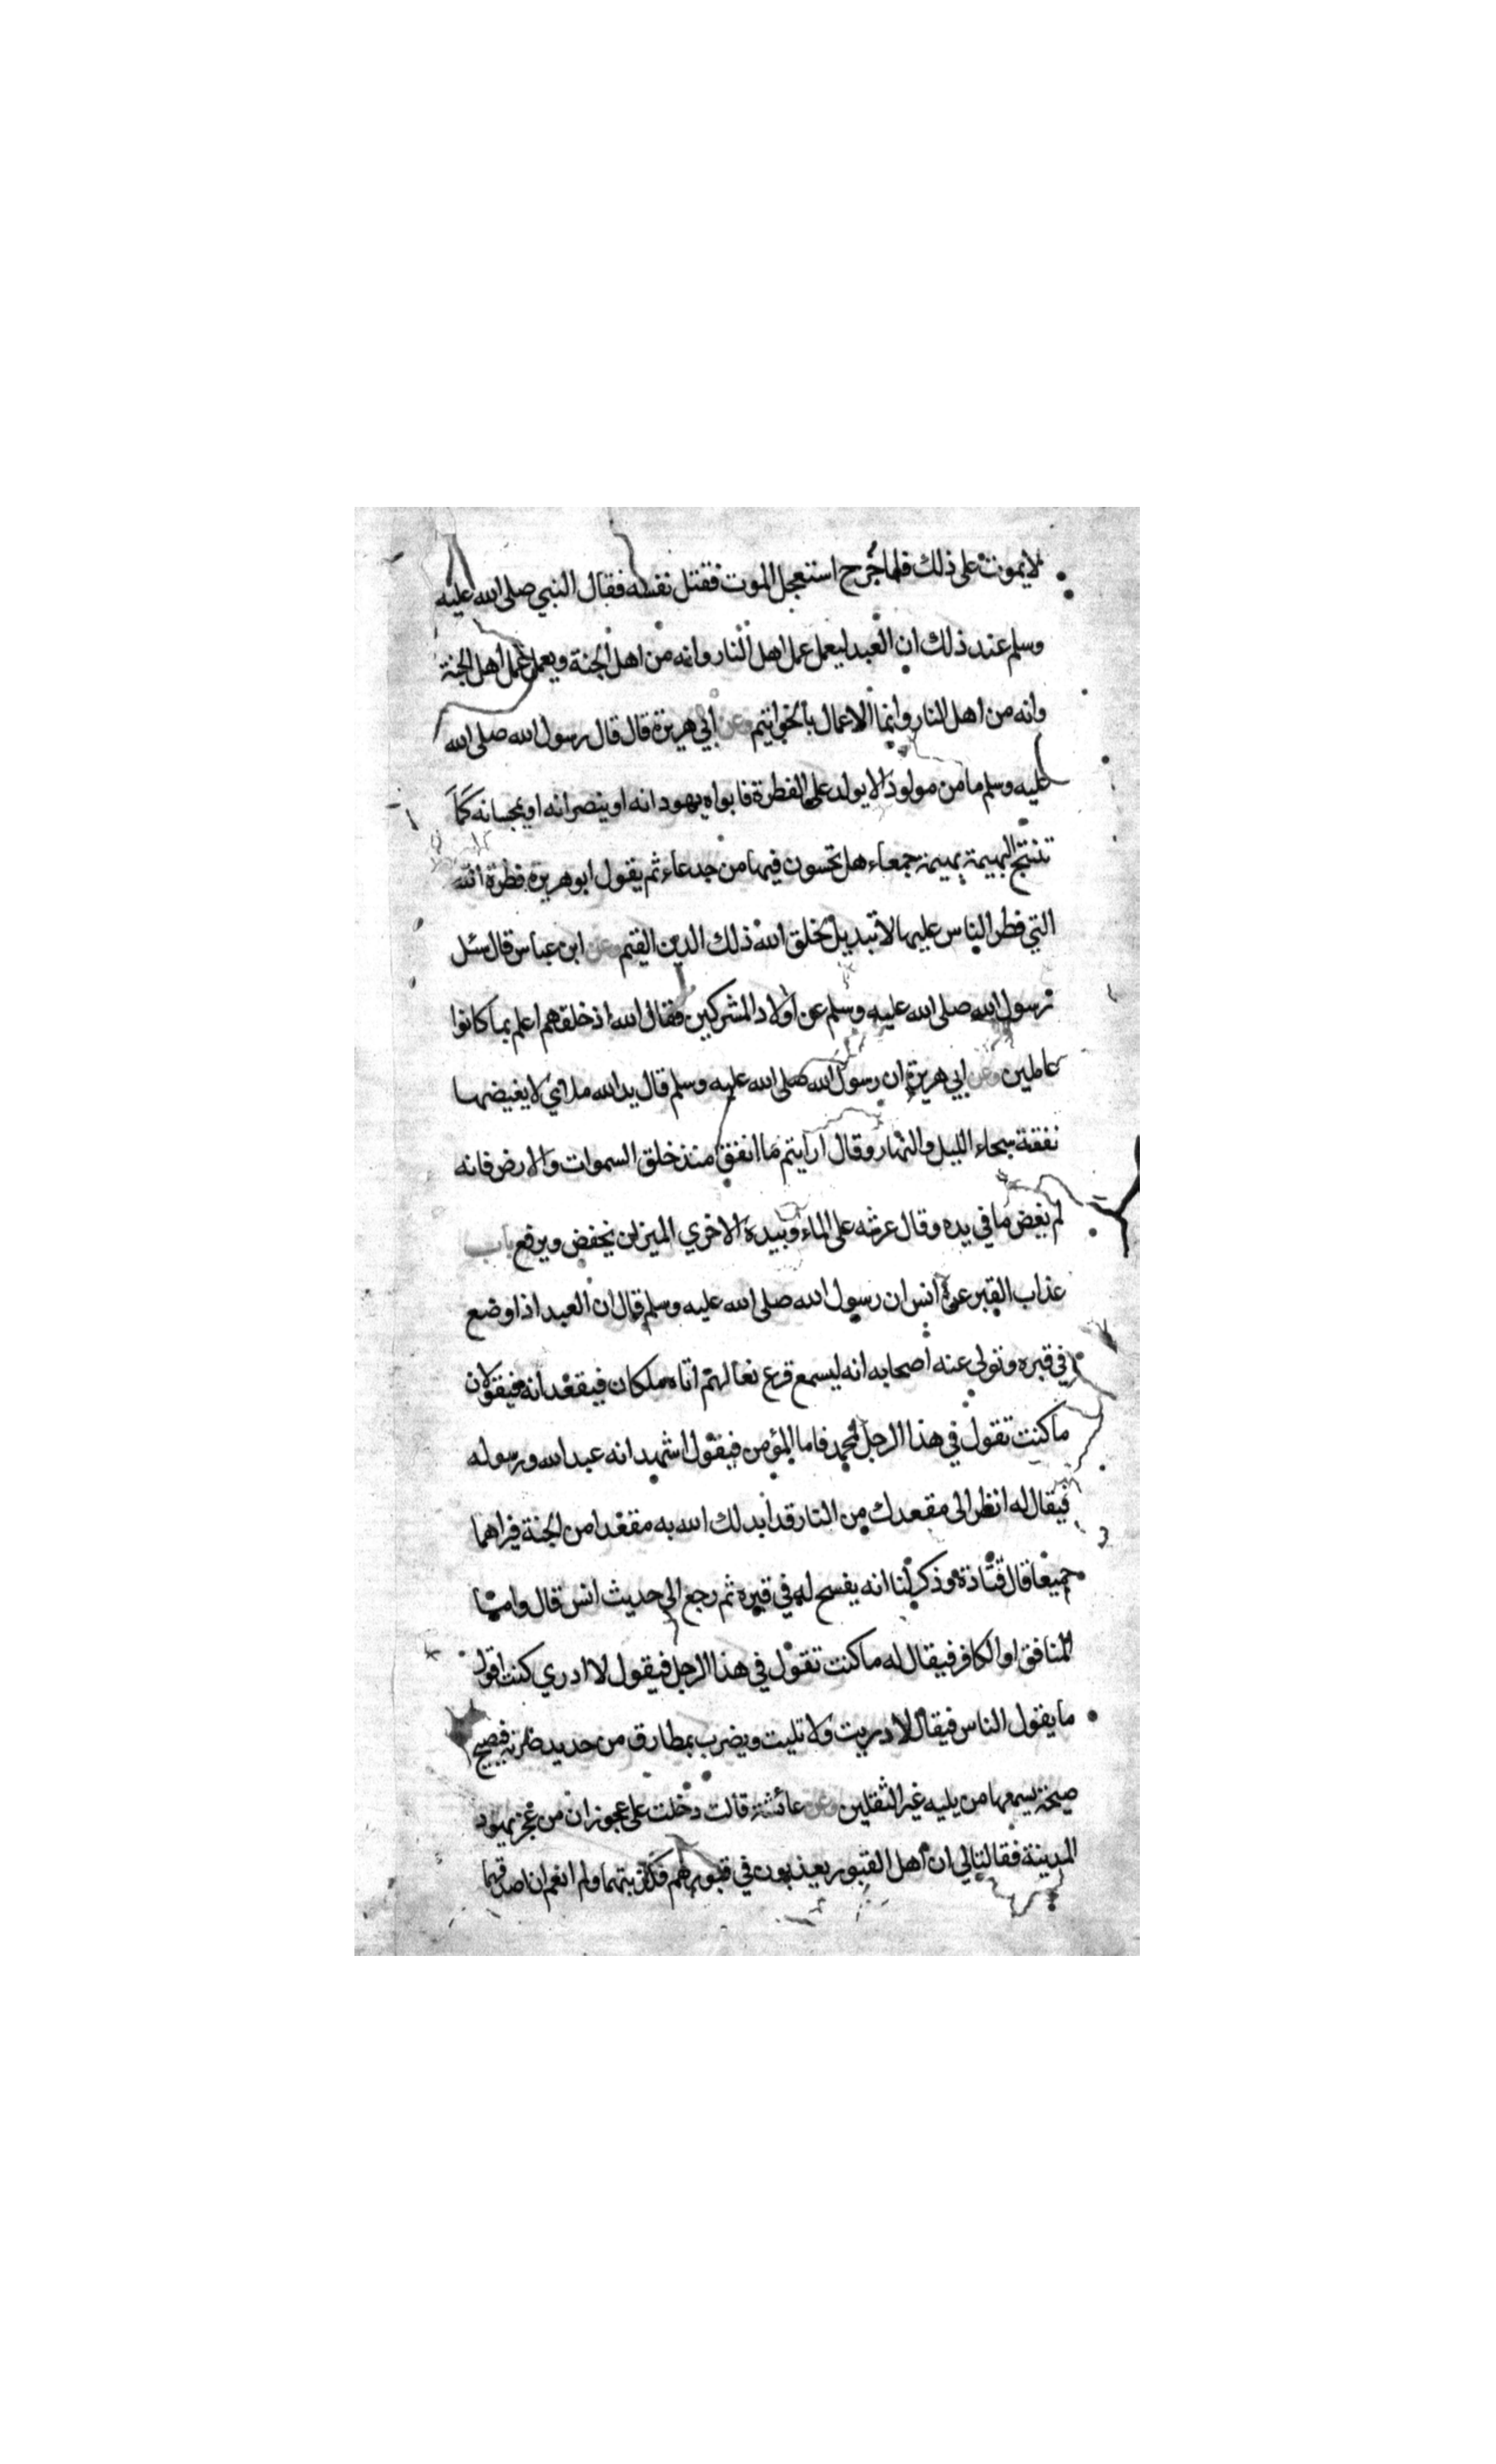 لايموت على ذلك فلما جُرح استعجل الموت فقتل نفسه فقال النبي صلى الله عليه
وسلم عند ذلك ان العبد ليعمل عمل اهل النار وانه من اهل الجنة ويعمل عمل اهل الجنة
وانه من اهل النار وانما الاعمال بالخواتيم وعن ابي هريرة قال قال رسول الله صلى الله
عليه وسلم مامن مولود الا يولد على الفطرة فابواه يهودانه او ينصرانه او يمجسانه كَمَا
تنتج البهيمة بهيمة جمعاء هل تحسون فيها من جدعاء ثم يقول ابو هريرة فطرة الله
التي فطر الناس عليها لا تبديل لخلق الله ذلك الدين القيم وعن ابن عباس قال سئل
رسول الله صلى الله عليه وسلم عن اولاد المشركين فقال الله اذ خلقهم اعلم بما كانوا
عاملين وعن ابي هريرة ان رسول الله صلى الله عليه وسلم قال يد الله ملاي لا يغيضها
نفقة سحاء الليل والنهار وقال ارايتم ما انفق منذ خلق السموات والارض فانه
لم يغض ما في يده وقال عرشه على الماء وبيده الاخري الميزان يخفض ويرفع باب
عذاب القبر عن انس ان رسول الله صلى الله عليه وسلم قال ان العبد اذا وضع
في قبره وتولى عنه اصحابه انه ليسمع قرع نعالهم اتاه ملكان فيقعدانه فيقولان
ما كنت تقول في هذا الرجل لمحمد فاما المؤمن فيقول اشهد انه عبد الله ورسوله
فيقال له انظر الى مقعدك من النار قد ابدلك الله به مقعدا من الجنة فيراهما
جميعا قال قتادة وذكر لنا انه يفسح له في قبره ثم رجع الى حديث انس قال واما
المنافق او الكافر فيقال له ما كنت تقول في هذا الرجل فيقول لا ادري كنت اقول
ما يقول الناس فيقال لا دريت ولا تليت ويضرب بمطارق من حديد ضربة فيصيح
صيحة يسمعها من يليه غير الثقلين وعن عائشة قالت دخلت على عجوزان من عجز يهود
المدينة فقالتا لي ان اهل القبور يعذبون في قبورهم فكذبتهما ولم انعم ان اصدقهما